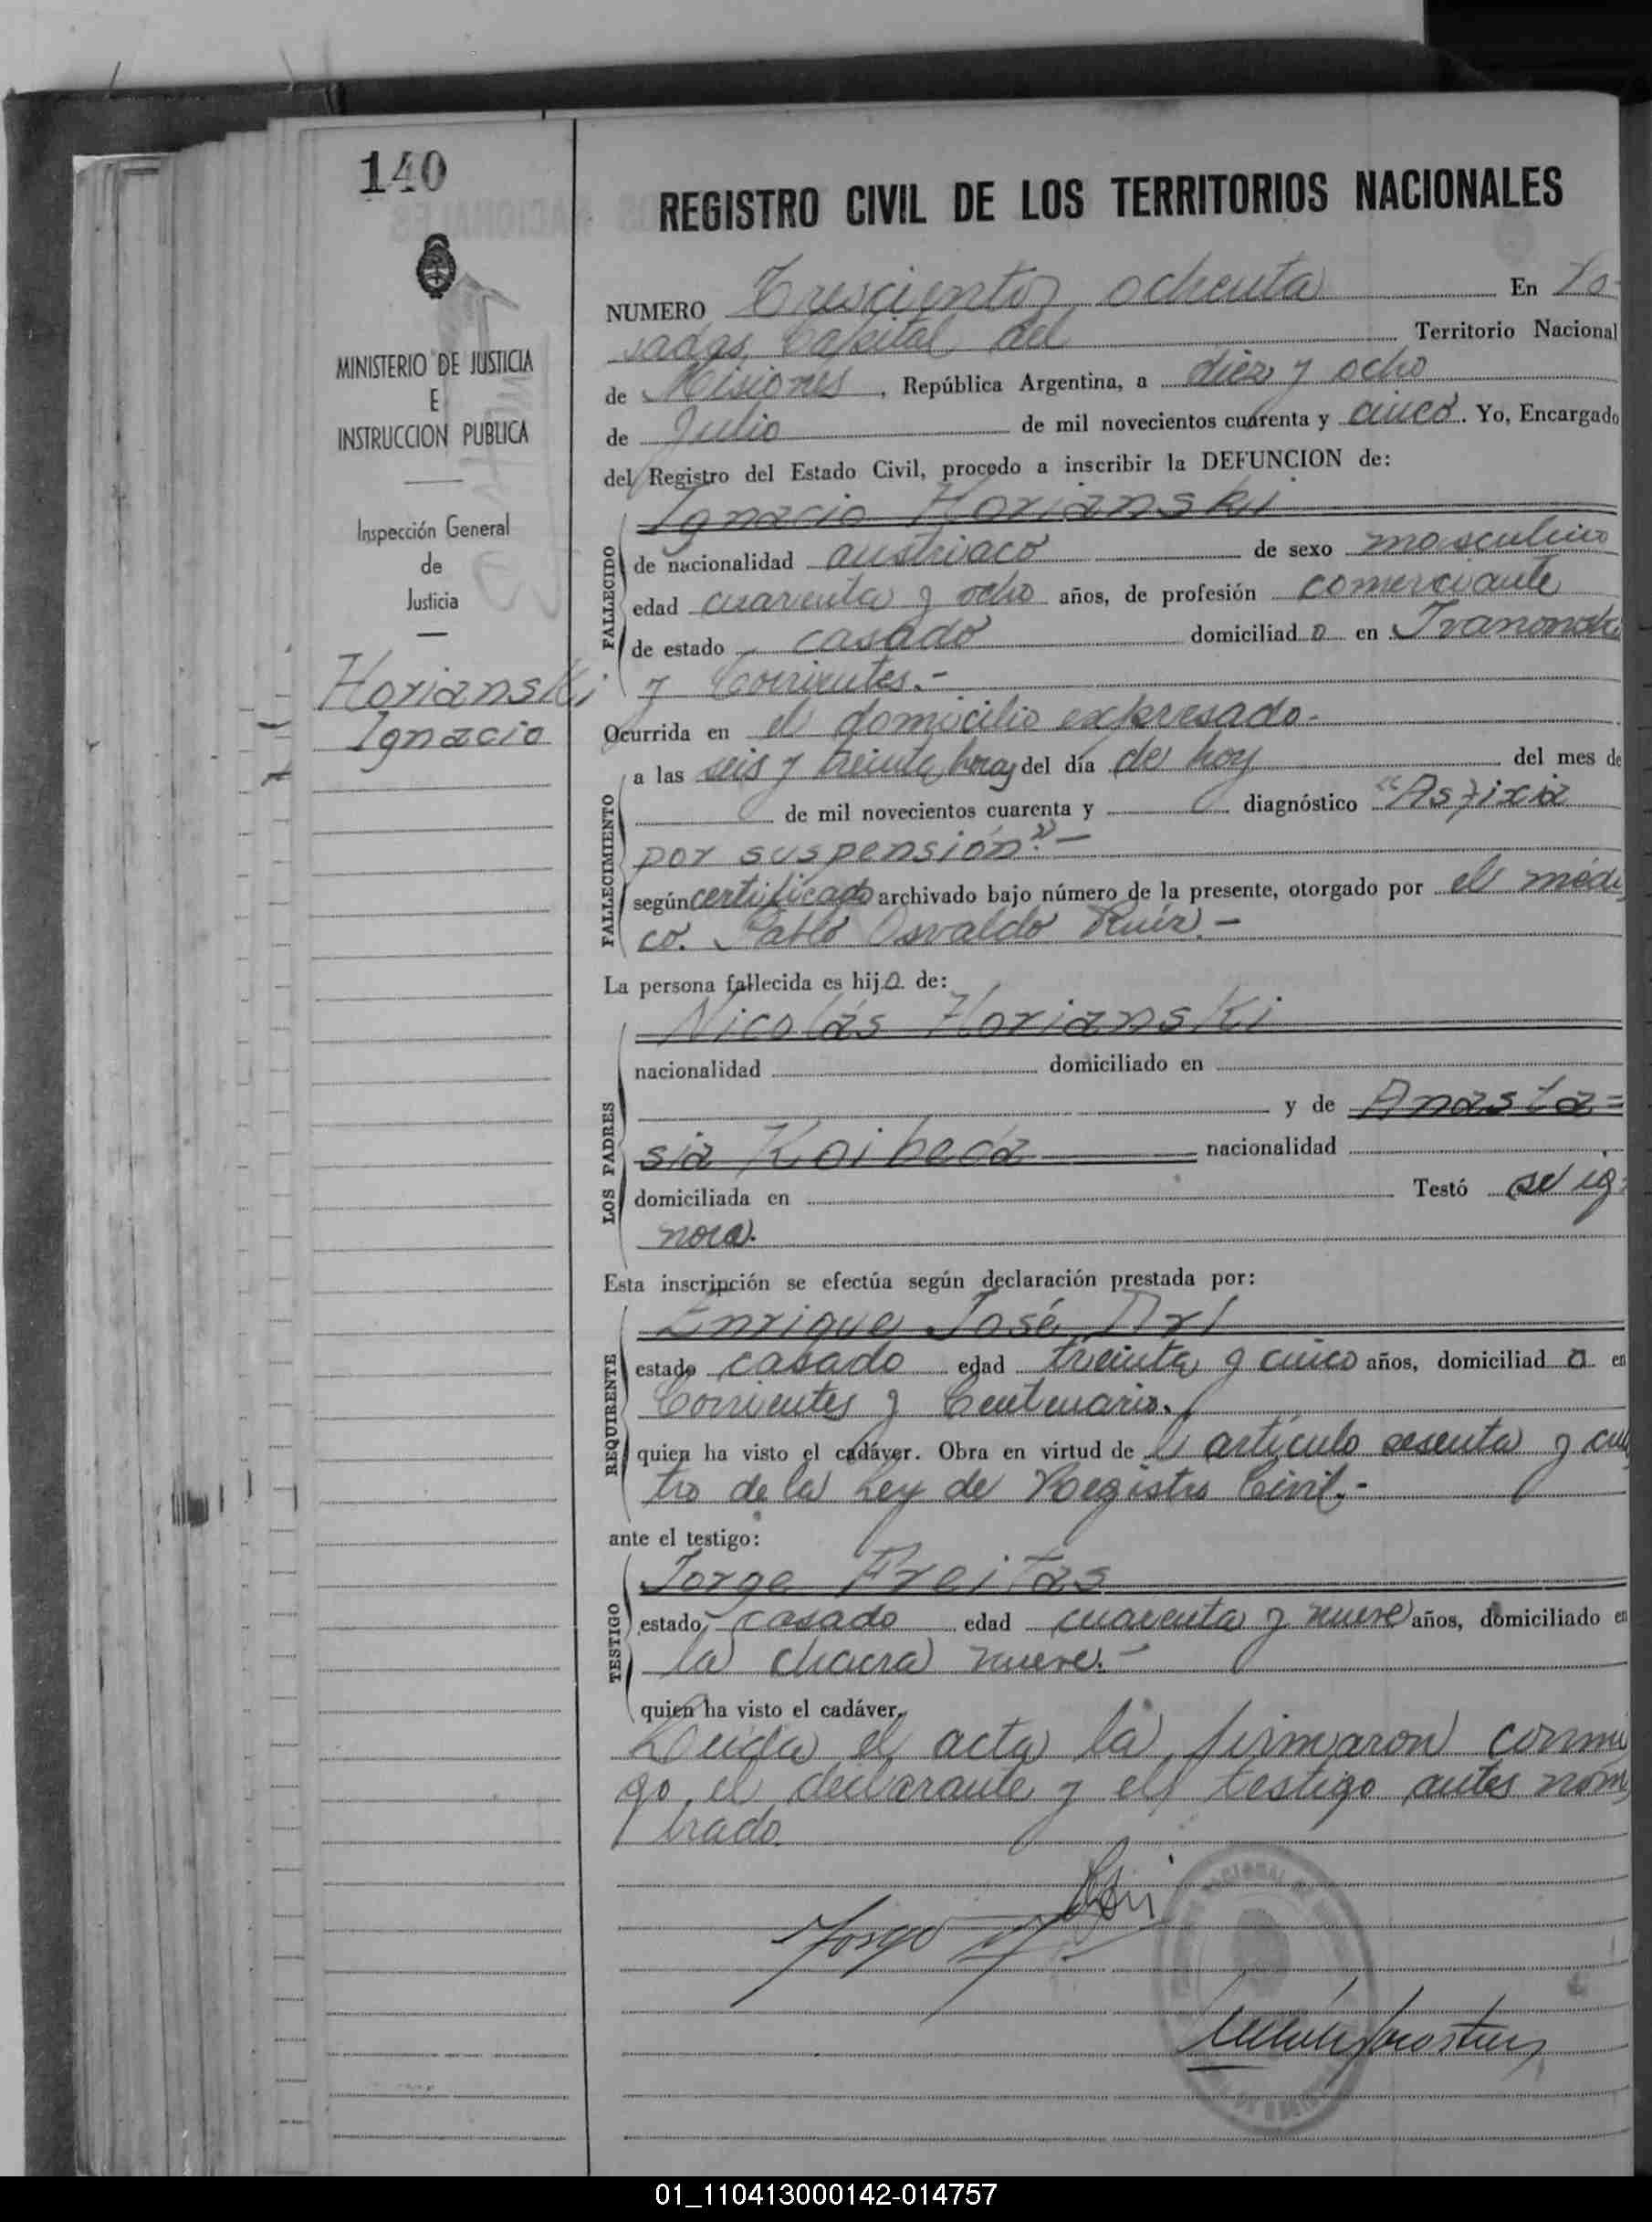 140
REGISTRO CIVIL DE LOS TERRITORIOS NACIONALES
MINISTERIO DE JUSTICIA
E
INSTRUCCION PUBLICA
Inspección General
de
Justicia
Horianski
Ignacio
NUMERO Trescientos ochenta En Po
sadas, Capital del Territorio Nacional
de Misiones, República Argentina, a diez y ocho
de Julio de mil novecientos cuarenta y cinco. Yo, Encargado
del Registro del Estado Civil, procedo a inscribir la DEFUNCION de:
Ignacio Horianski
FALLECIDO
de nacionalidad austriaco de sexo masculino
edad cuarenta y ocho años, de profesión comerciante
de estado casado domiciliado en
y Corrientes.-
Ocurrida en el domicilio expresado.-
FALLECIMIENTO
a las seis y treinta horas del día de hoy del mes de
de mil novecientos cuarenta y diagnóstico "Asfixia
por suspensión".-
según certificado archivado bajo número de la presente, otorgado por el médi
co. Pablo Osvaldo Ruíz.-
La persona fallecida es hijo de:
LOS PADRES
Nicolás Horianski
nacionalidad domiciliado en
y de Anasta=
sia nacionalidad
domiciliada en Testó se ig=
nora.
Esta inscripción se efectúa según declaración prestada por:
REQUIRENTE
Enrique José Arl
estado casado edad treinta y cinco años, domiciliado en
Corrientes y Centenario.
quien ha visto el cadáver. Obra en virtud del artículo sesenta y cua
tro de la Ley de Registro Civil.-
ante el testigo:
TESTIGO
Jorge Freitas
estado casado edad cuarenta y nueve años, domiciliado en
la chacra nueve.-
quien ha visto el cadáver.
Leída el acta la firmaron conmi
go el declarante y el testigo antes nom
brado.
Jorge
01_110413000142-014757